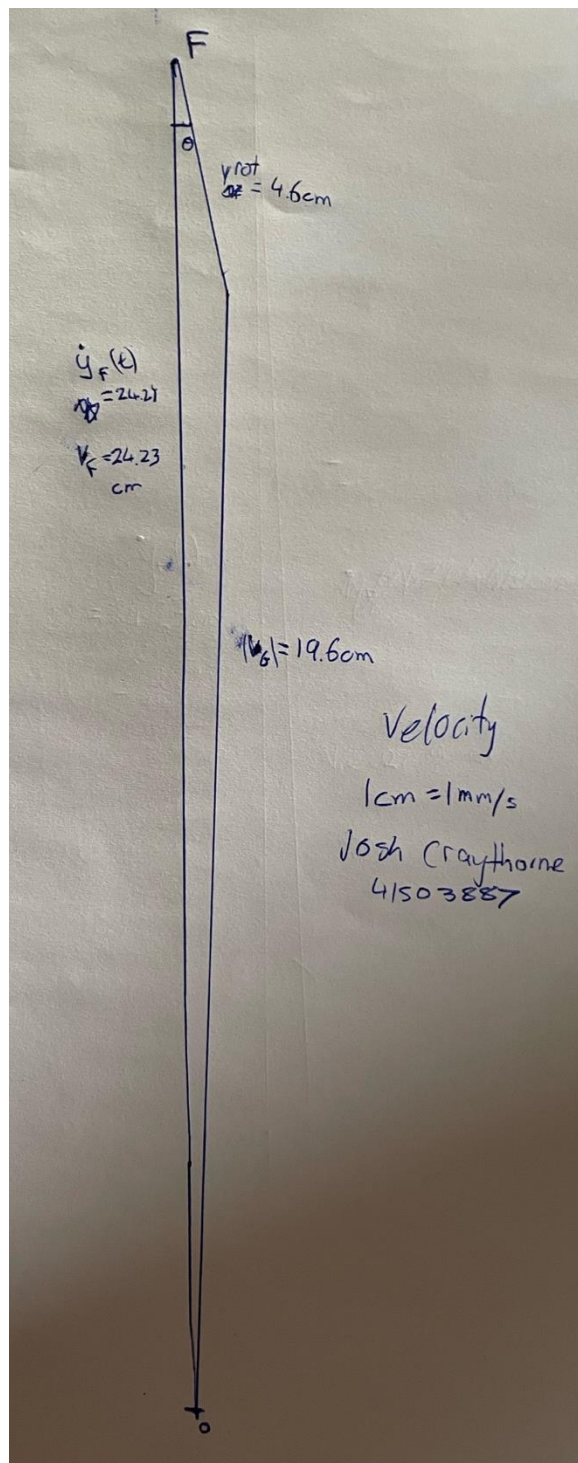 F
θ
y rot
= 4.6cm
ẏF(t)
=24.2
VF=24.23
cm
|VG|=19.6cm
Velocity
1cm=1mm/s
Josh Craythorne
41503887
o